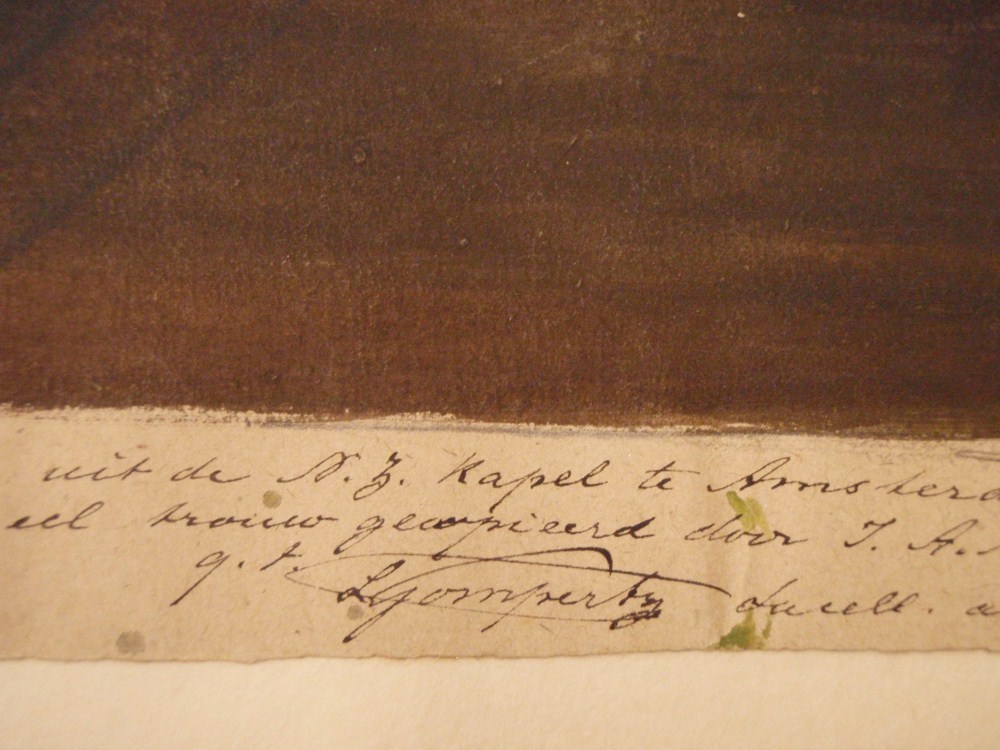 uit de N. Z. Kapel te Amsterd
eel trouw gecopieerd door J. A.
g. t. LGompertz